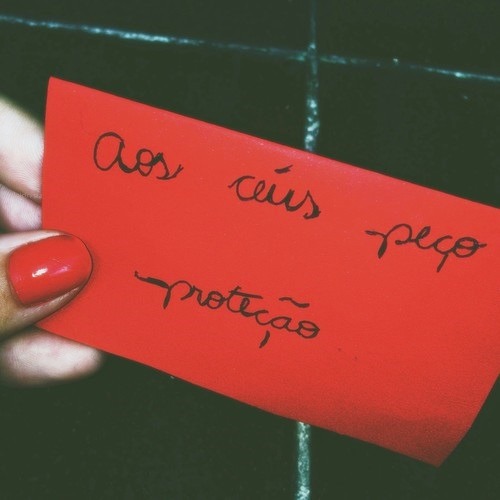 Aos céus peço
proteção